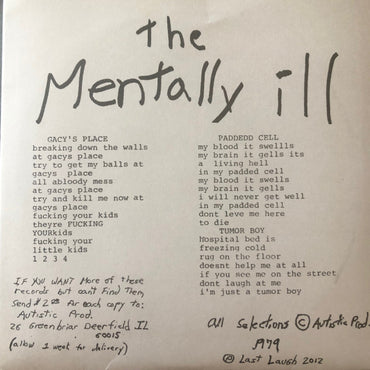 the
Mentally ill
GACY'S PLACE
breaking down the walls
at gacys place
try to get my balls at
gacys place
all abloody mess
at gacys place
try and kill me now at
gacys place
fucking your kids
theyre FUCKING
YOURkids
fucking your
little kids
1 2 3 4
PADDEDD CELL
my blood it swellls
my brain it gells its
a hell
in my padded cell
my blood it swells
my brain it gells
i will never get well
in my padded cell
dont leve me here
to die
TUMOR BOY
Hospital bed is
freezing cold
rug on the floor
doesnt help me at all
if you see me on the street
dont laugh at me
i'm just a tumor boy
IF YOU WANT More of these
records but can't Find Them,
Send $2.00 for each copy to:
Autistic Prod.
26 Greenbriar Deerfield IL
60015
(allow 1 week for delivery)
all selections © Autistic Prod.
1979
℗ Last Laugh 2012